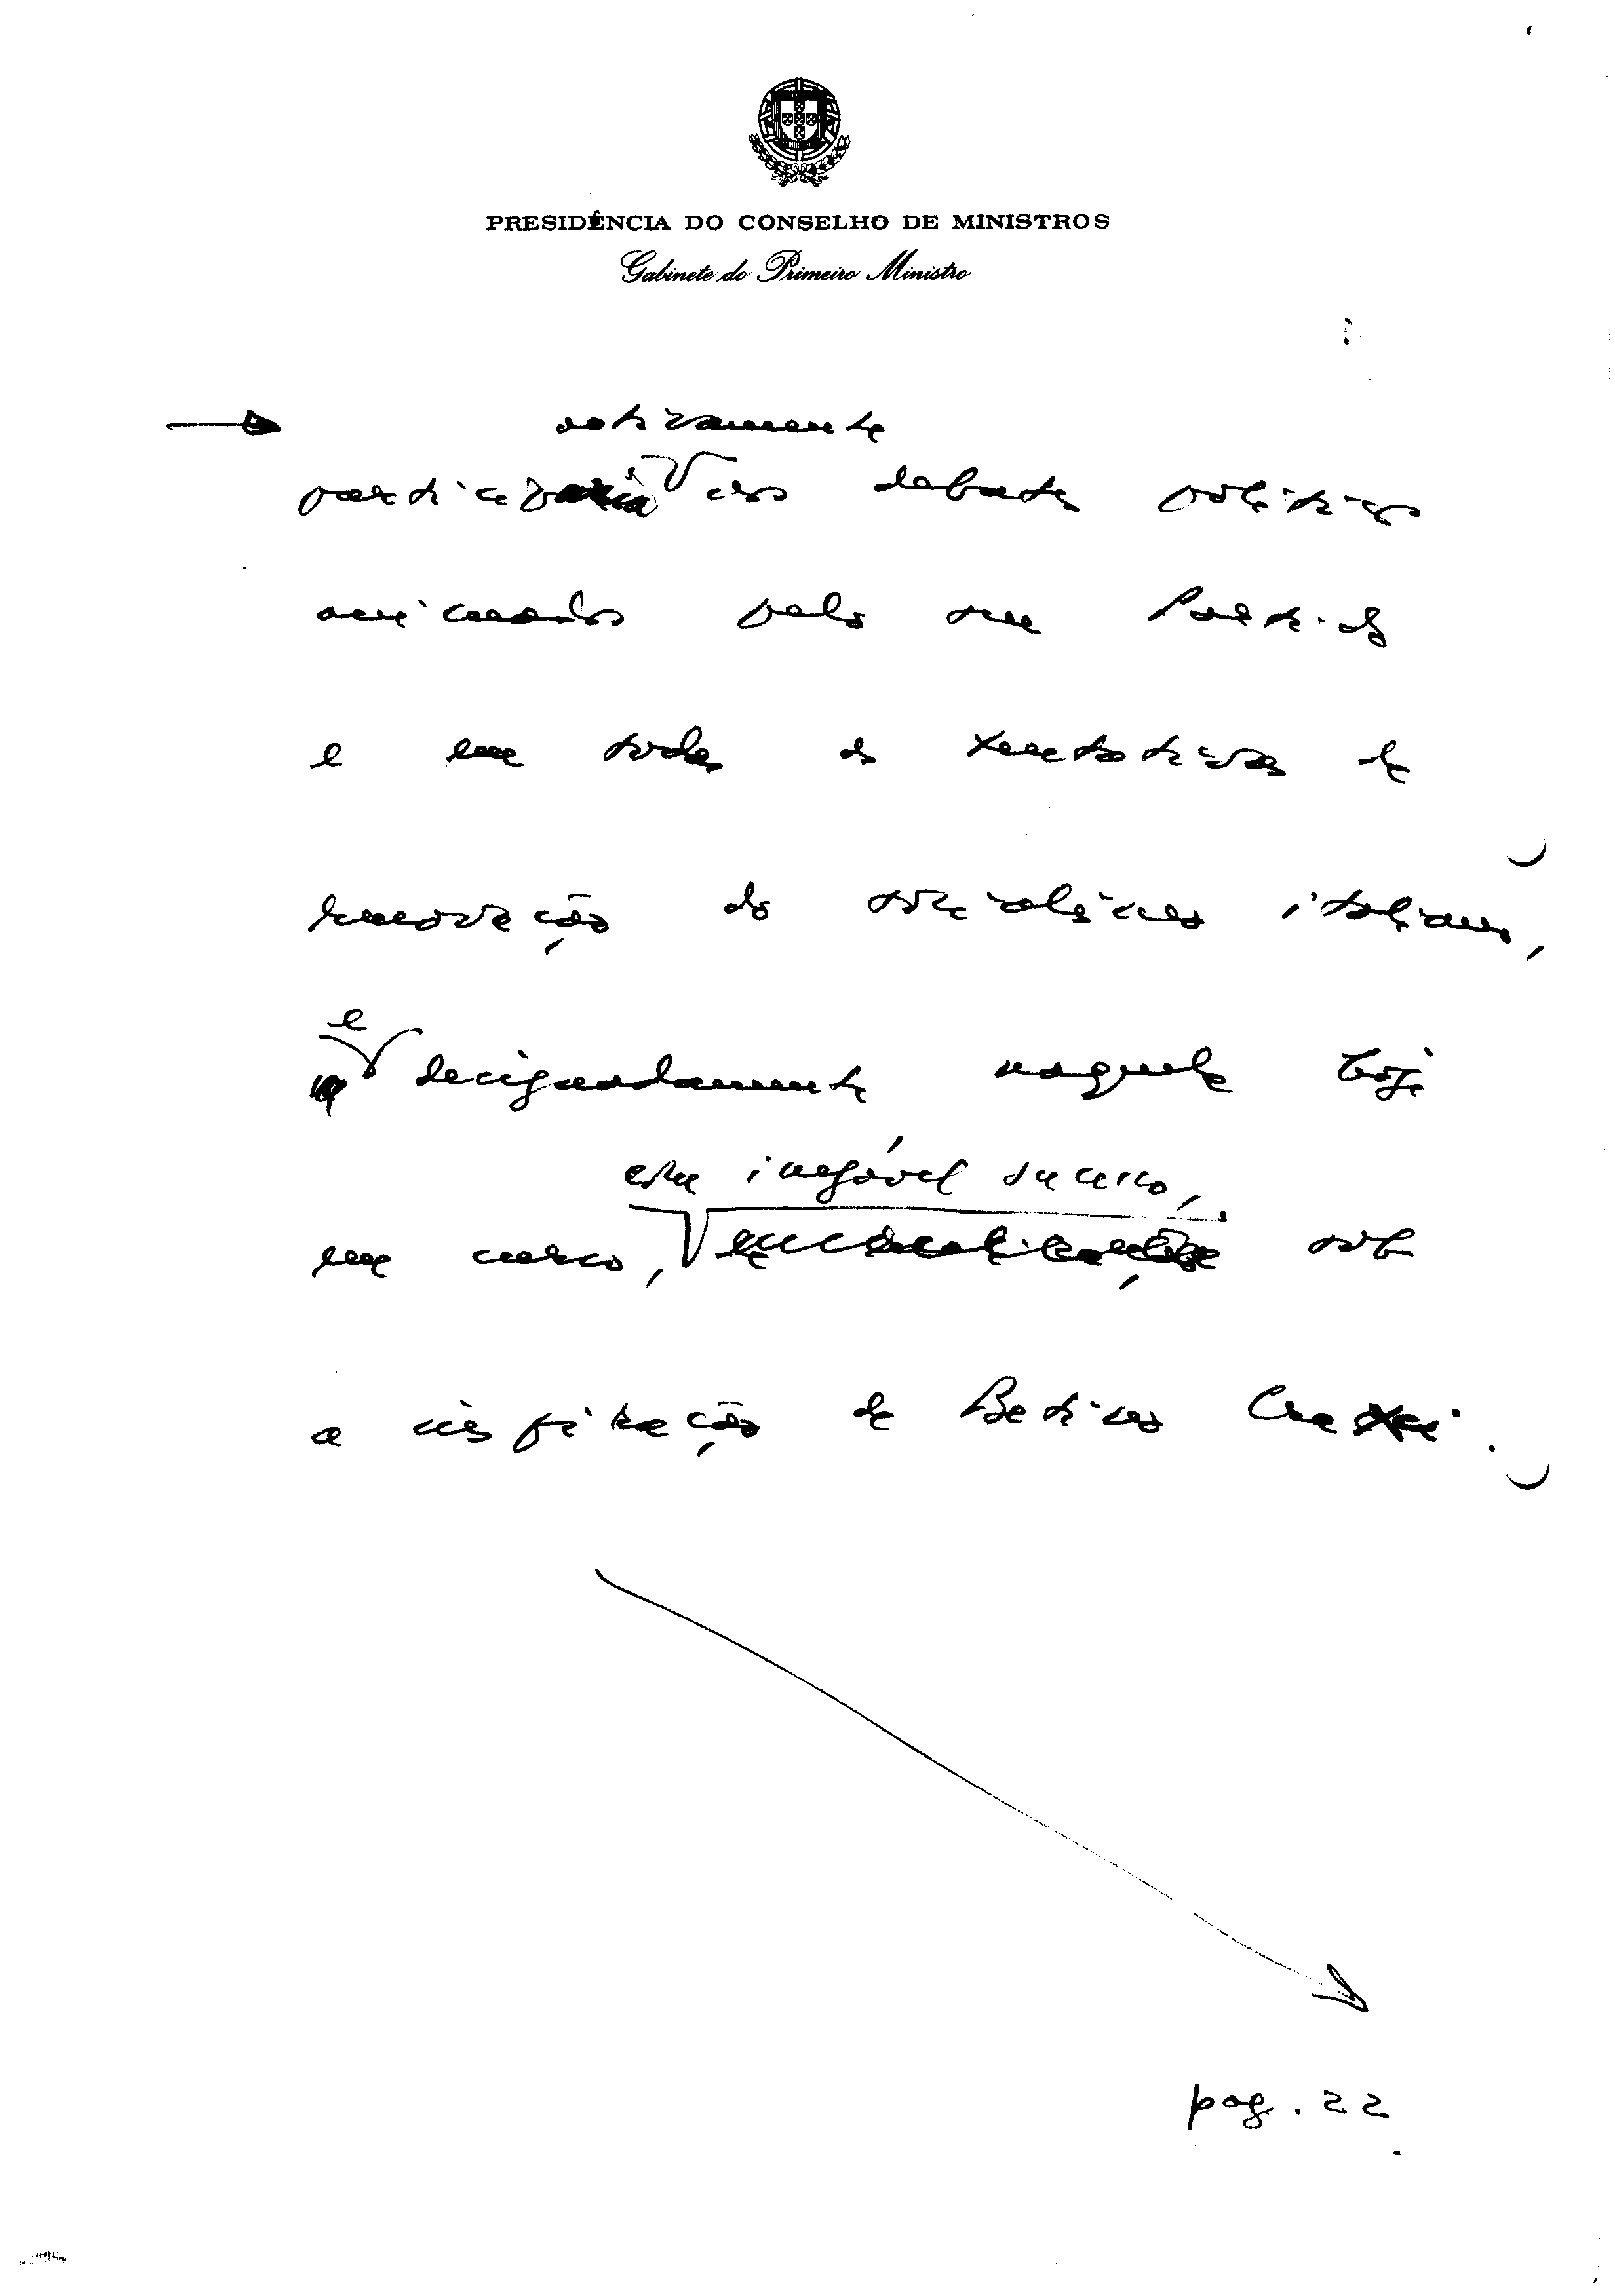 PRESIDÊNCIA DO CONSELHO DE MINISTROS
Gabinete do Primeiro Ministro
activamente
participaria nos debates políticos
animados pelo seu Partido
e em todas as tentativas de
renovação do socialismo italiano,
e
designadamente naquela hoje
com inegável sucesso,
em curso, sob
a inspiração de Bettino Craxi.
pag. 22